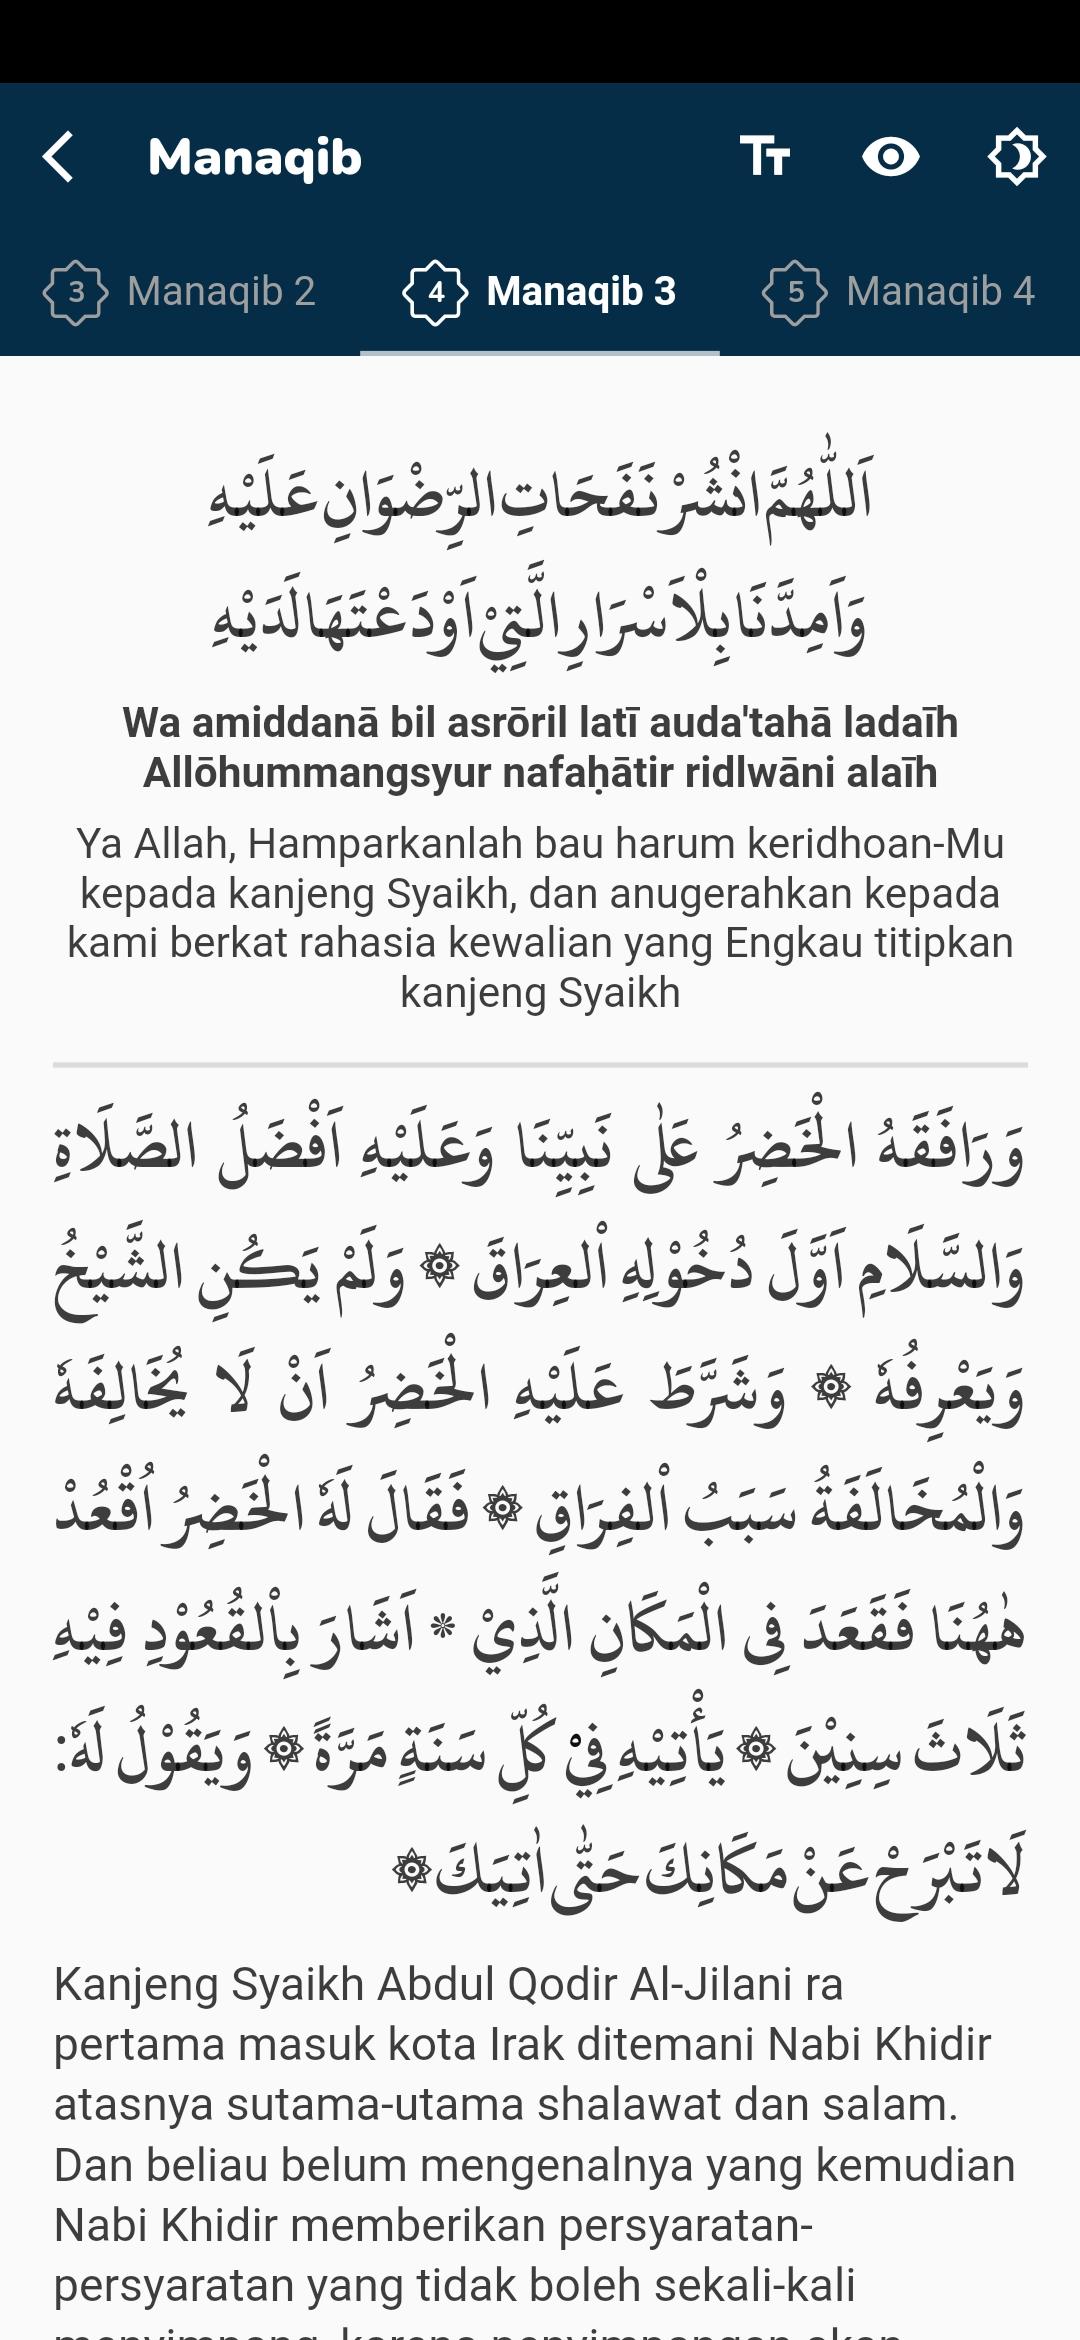 Manaqib
3 Manaqib 2
4 Manaqib 3
5 Manaqib 4
اَللّٰهُمَّ انْشُرْ نَفَحَاتِ الرِّضْوَانِ عَلَيْهِ
وَاَمِدَّنَا بِلْاَسْرَارِ الَّتِيْ اَوْدَعْتَهَا لَدَيْهِ
Wa amiddanā bil asrōril latī auda'tahā ladaīh
Allōhummangsyur nafaḥātir ridlwāni alaīh
Ya Allah, Hamparkanlah bau harum keridhoan-Mu
kepada kanjeng Syaikh, dan anugerahkan kepada
kami berkat rahasia kewalian yang Engkau titipkan
kanjeng Syaikh
وَرَافَقَهُ الْخَضِرُ عَلٰى نَبِيِّنَا وَعَلَيْهِ اَفْضَلُ الصَّلَاةِ
وَالسَّلَامِ اَوَّلَ دُخُوْلِهِ اْلعِرَاقَ ۞ وَلَمْ يَكُنِ الشَّيْخُ
وَيَعْرِفُهٗ ۞ وَشَرَّطَ عَلَيْهِ الْخَضِرُ اَنْ لَا يُخَالِفَهٗ
وَالْمُخَالَفَةُ سَبَبُ اْلفِرَاقِ ۞ فَقَالَ لَهٗ الْخَضِرُ اُقْعُدْ
هٰهُنَا فَقَعَدَ فِى الْمَكَانِ الَّذِيْ * اَشَارَ بِاْلقُعُوْدِ فِيْهِ
ثَلَاثَ سِنِيْنَ ۞ يَأْتِيْهِ فِيْ كُلِّ سَنَةٍ مَرَّةً ۞ وَيَقُوْلُ لَهٗ:
لَا تَبْرَحْ عَنْ مَكَانِكَ حَتّٰى اٰتِيَكَ ۞
Kanjeng Syaikh Abdul Qodir Al-Jilani ra
pertama masuk kota Irak ditemani Nabi Khidir
atasnya sutama-utama shalawat dan salam.
Dan beliau belum mengenalnya yang kemudian
Nabi Khidir memberikan persyaratan-
persyaratan yang tidak boleh sekali-kali